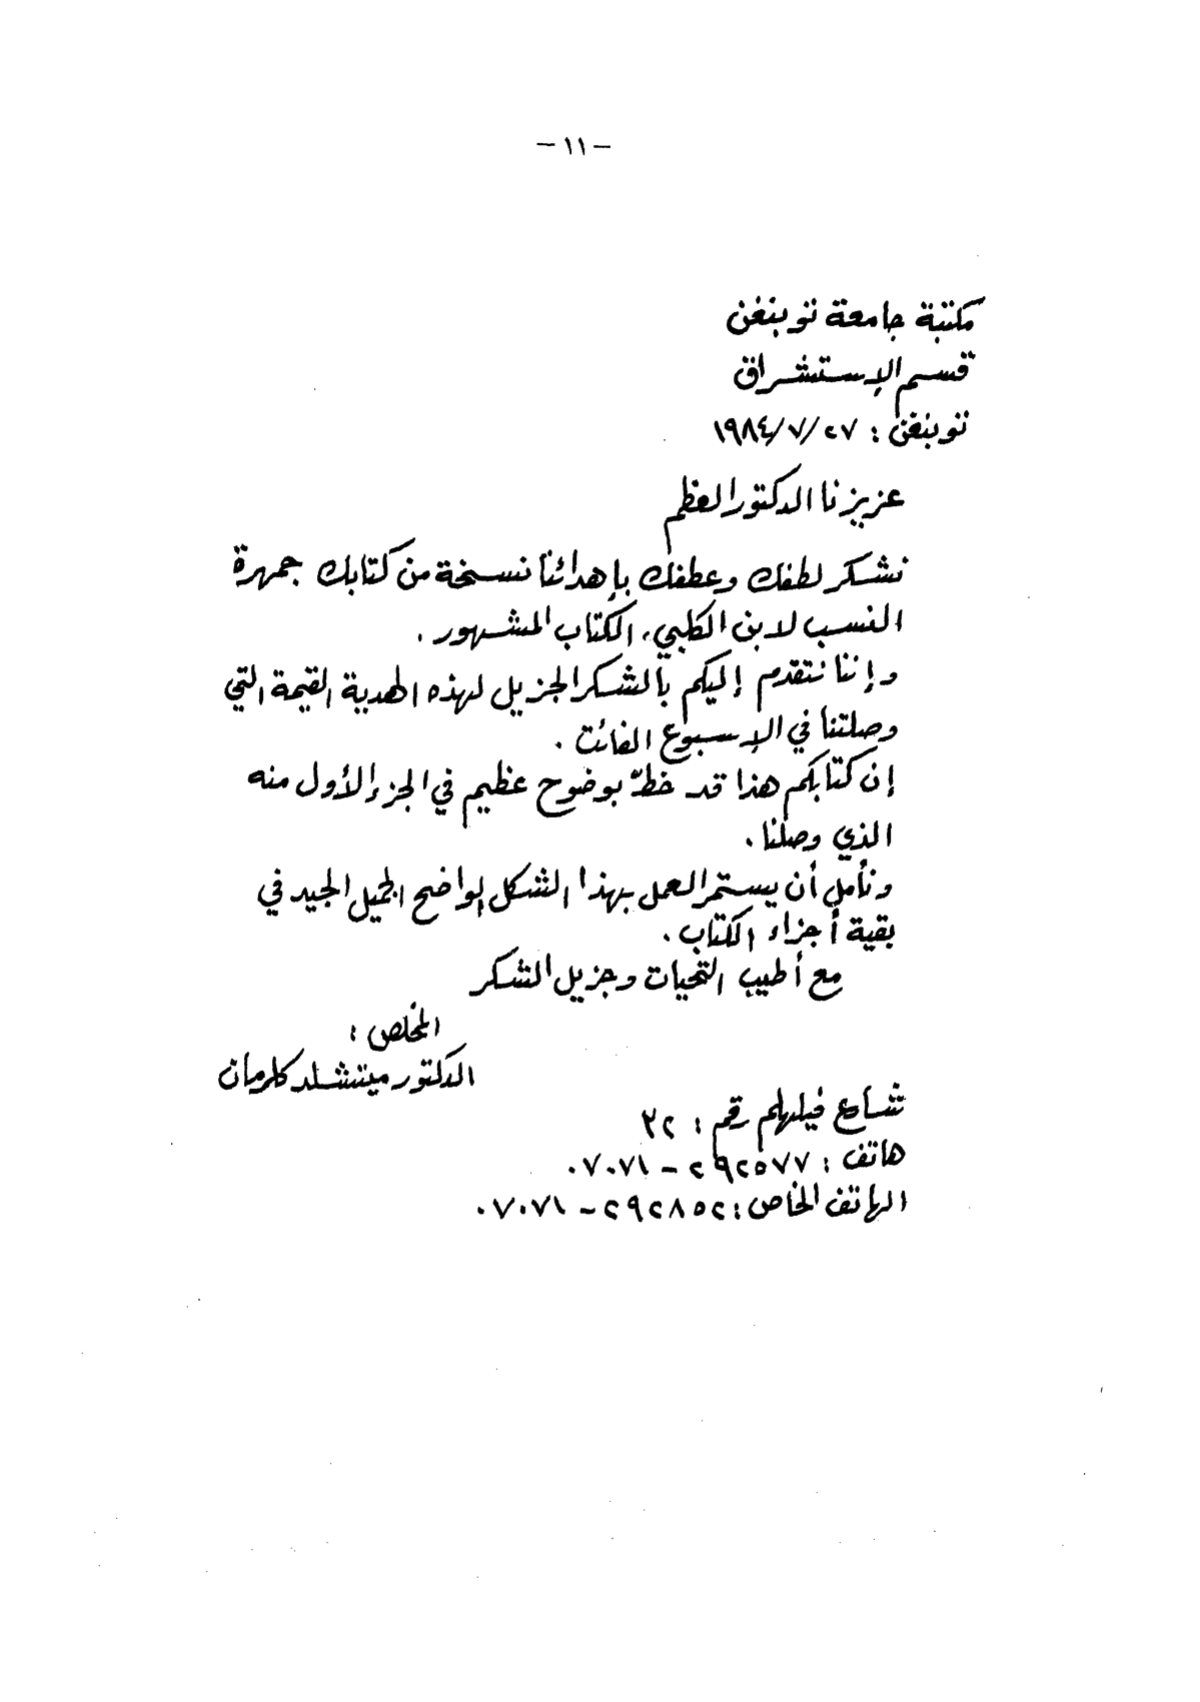 - ١١ -
مكتبة جامعة توبنغن
قسم الإستشراق
توبنغن : ٢٧/ ٧/ ١٩٨٤
عزيزنا الدكتور العظم
نشكر لطفك وعطفك بإهدائنا نسخة من كتابك جمهرة
النسب لابن الكلبي، الكتاب المشهور .
وإننا نتقدم إليكم بالشكر الجزيل لهذه الهدية القيمة التي
وصلتنا في الإسبوع الفائت .
إن كتابكم هذا قد خطّ بوضوح عظيم في الجزء الأول منه
الذي وصلنا .
ونأمل أن يستمر العمل بهذا الشكل الواضح الجميل الجيد في
بقية أجزاء الكتاب .
مع أطيب التحيات وجزيل الشكر
المخلص :
الدكتور ميتشلد كلرمان
شارع فيلهلم رقم : ٣٢
هاتف : ٢٩٢٥٧٧ - ٠٧٠٧١
الهاتف الخاص : ٢٩٢٨٥٢ - ٠٧٠٧١